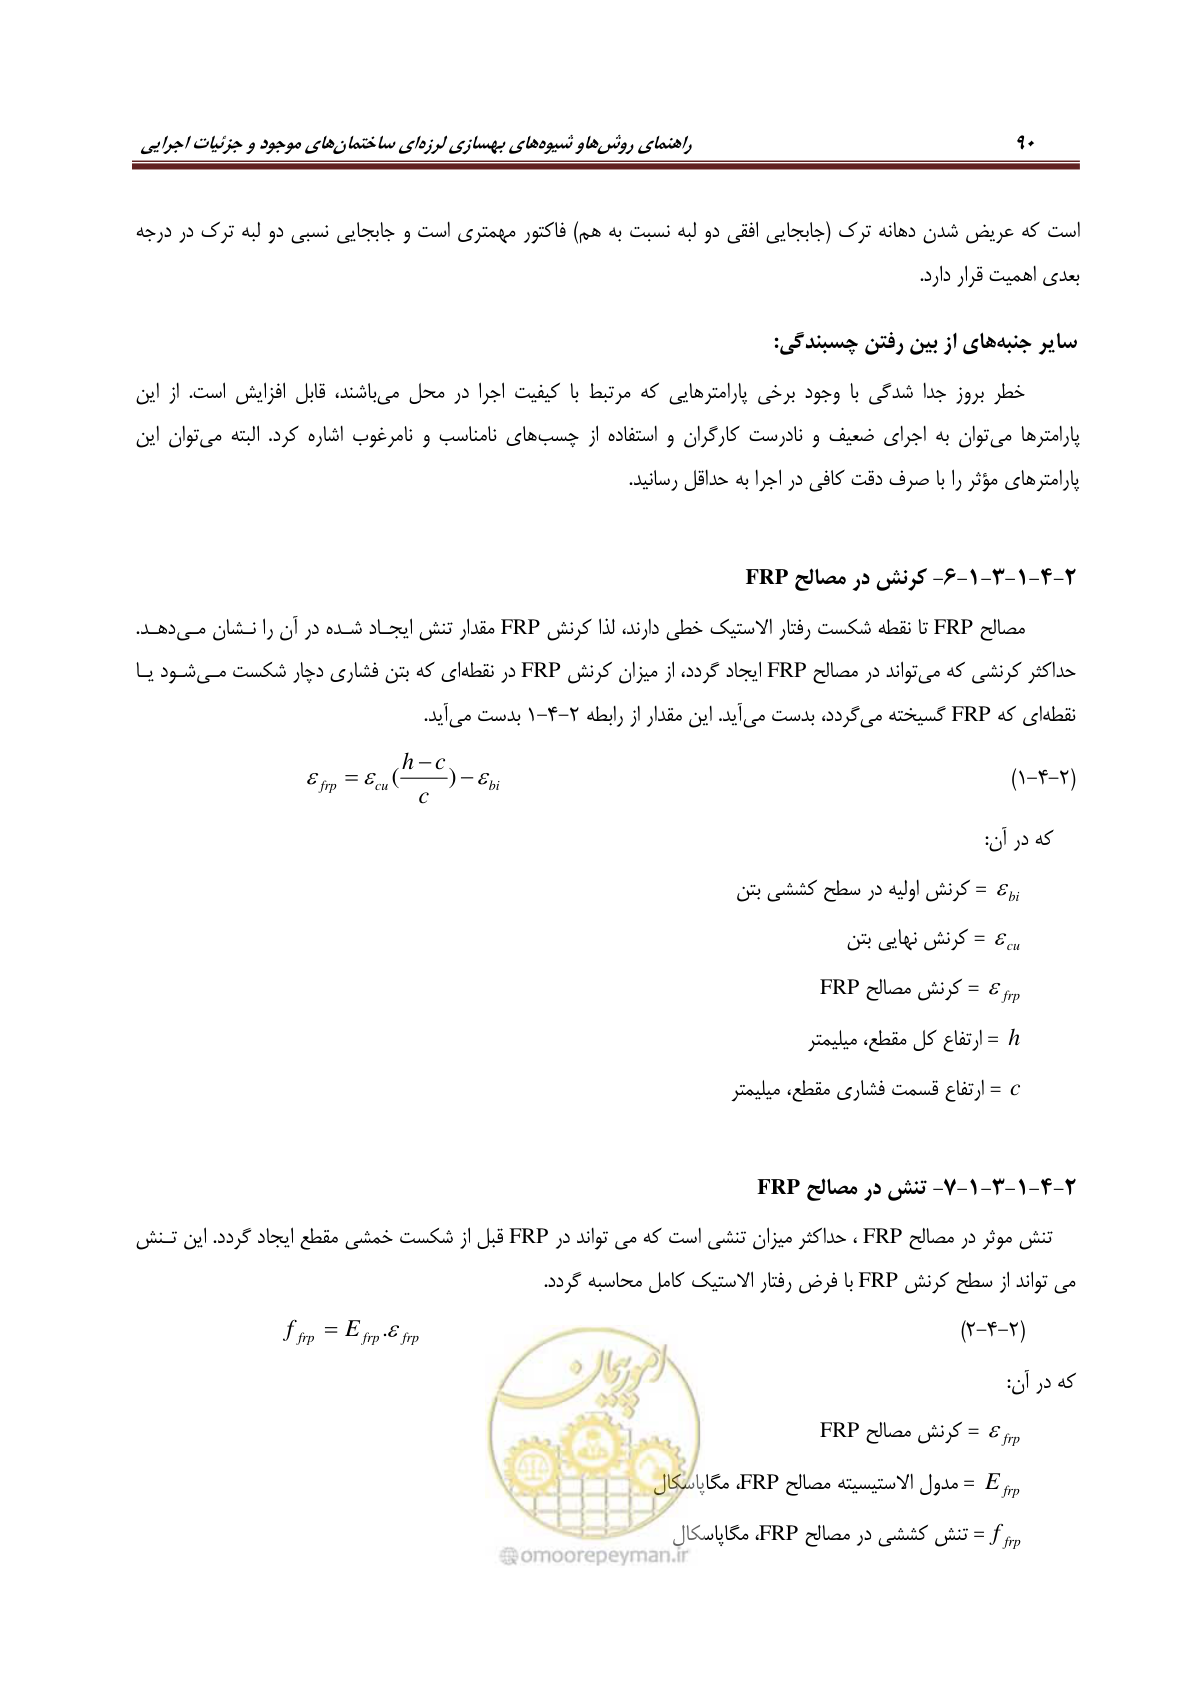 ۹۰ راهنمای روش‌هاو شیوه‌های بهسازی لرزه‌ای ساختمان‌های موجود و جزئیات اجرایی
است که عریض شدن دهانه ترک (جابجایی افقی دو لبه نسبت به هم) فاکتور مهمتری است و جابجایی نسبی دو لبه ترک در درجه
بعدی اهمیت قرار دارد.
سایر جنبه‌های از بین رفتن چسبندگی:
خطر بروز جدا شدگی با وجود برخی پارامترهایی که مرتبط با کیفیت اجرا در محل می‌باشند، قابل افزایش است. از این
پارامترها می‌توان به اجرای ضعیف و نادرست کارگران و استفاده از چسب‌های نامناسب و نامرغوب اشاره کرد. البته می‌توان این
پارامترهای مؤثر را با صرف دقت کافی در اجرا به حداقل رسانید.
۲-۴-۱-۳-۱-۶- کرنش در مصالح FRP
مصالح FRP تا نقطه شکست رفتار الاستیک خطی دارند، لذا کرنش FRP مقدار تنش ایجـاد شـده در آن را نـشان مـی‌دهـد.
حداکثر کرنشی که می‌تواند در مصالح FRP ایجاد گردد، از میزان کرنش FRP در نقطه‌ای که بتن فشاری دچار شکست مـی‌شـود یـا
نقطه‌ای که FRP گسیخته می‌گردد، بدست می‌آید. این مقدار از رابطه ۲-۴-۱ بدست می‌آید.
(۲-۴-۱) ε_frp = ε_cu((h − c)/c) − ε_bi
که در آن:
ε_bi = کرنش اولیه در سطح کششی بتن
ε_cu = کرنش نهایی بتن
ε_frp = کرنش مصالح FRP
h = ارتفاع کل مقطع، میلیمتر
c = ارتفاع قسمت فشاری مقطع، میلیمتر
۲-۴-۱-۳-۱-۷- تنش در مصالح FRP
تنش موثر در مصالح FRP ، حداکثر میزان تنشی است که می تواند در FRP قبل از شکست خمشی مقطع ایجاد گردد. این تـنش
می تواند از سطح کرنش FRP با فرض رفتار الاستیک کامل محاسبه گردد.
(۲-۴-۲) f_frp = E_frp.ε_frp
که در آن:
ε_frp = کرنش مصالح FRP
E_frp = مدول الاستیسیته مصالح FRP، مگاپاسکال
f_frp = تنش کششی در مصالح FRP، مگاپاسکال
امور پیمان
@omoorepeyman.ir